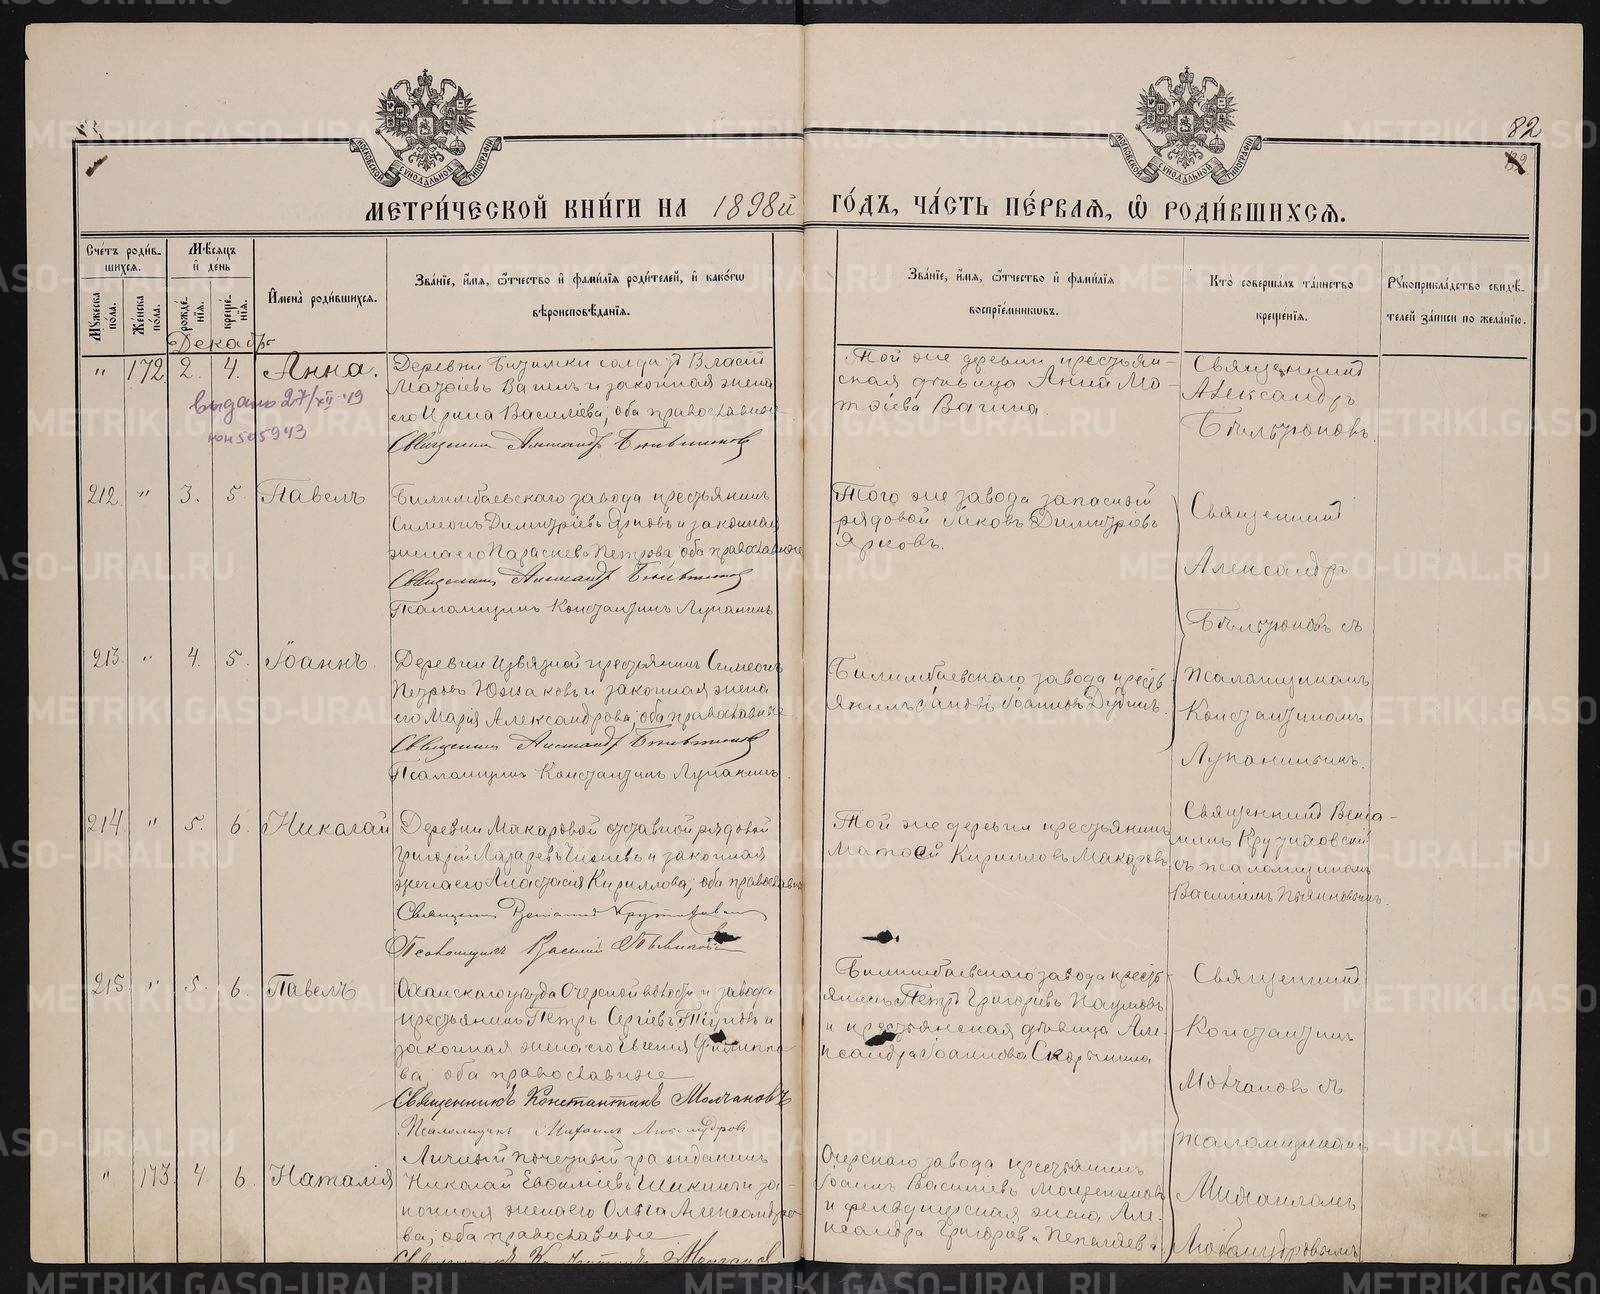 82
МОСКОВСКОЙ СѴНОДАЛЬНОЙ ТИПОГРАФІИ
МОСКОВСКОЙ СѴНОДАЛЬНОЙ ТИПОГРАФІИ
МЕТРИ́ЧЕСКОЙ КНИ́ГИ НА 1898й ГО́ДЪ, ЧА́СТЬ ПЕ́РВАЯ, Ѡ РОДИ́ВШИХСЯ.
Сче́тъ роди́в-
шихся.
Му́жеска по́ла.
Же́нска по́ла.
Мѣ́сяцъ
и҆ де́нь
рожде́нїѧ.
креще́нїѧ.
И҆мена̀ роди́вшихся.
Зва́нїе, и҆́мя, ѻ҆́тчество и҆ фами́лїя роди́телей, и҆ како́гѡ
вѣроисповѣ́данїя.
Зва́нїе, и҆́мя, ѻ҆́тчество и҆ фами́лїя
воспрїе́мниковъ.
Кто̀ соверша́лъ та́инство
креще́нїя.
Рꙋкоприкла́дство свидѣ́-
телей за́писи по жела́нїю.
Декабрь
" 172 2. 4. Анна.
выдано 27/XII-19
Деревни Битимки солдатъ Власій
Матѳіевъ Вагинъ и законная жена
его Ирина Василіева; оба православные
Священникъ Александръ
Той же деревни крестьян-
ская дѣвица Анна Ма-
тѳіева Вагина.
Священникъ
Александръ
212 " 3. 5. Павелъ
Билимбаевскаго завода крестьянинъ
Симеонъ Димитріевъ Ярковъ и законная
жена его Параскева Петрова; оба православные
Священникъ Александръ
Псаломщикъ Константинъ Лупанинъ
Того же завода запасной
рядовой Іаковъ Димитріевъ
Ярковъ.
Священникъ
Александръ
съ
псаломщикомъ
Константиномъ
Лупанинымъ.
213. " 4. 5. Іоаннъ.
Деревни Извязной крестьянинъ Симеонъ
Петровъ Южаковъ и законная жена
его Марія Александрова; оба православные
Священникъ Александръ
Псаломщикъ Константинъ Лупанинъ
Билимбаевскаго завода кресть-
янинъ Іоанновъ
214. " 5. 6. Николай
Деревни Макаровой отставной рядовой
Григорій Лазаревъ и законная
жена его Анастасія Кириллова; оба православные
Священникъ Веніаминъ
Псаломщикъ Василій
Той же деревни крестьянинъ
Матѳей Кирилловъ Макаровъ
Священникъ Веніа-
минъ
съ псаломщикомъ
Василіемъ
215 " 5. 6 Павелъ
Оханскаго уѣзда Очерской волости и завода
крестьянинъ Петръ Сергіевъ и
законная жена его Евгенія Филиппо-
ва; оба православные
Священникъ Константинъ Молчановъ
Псаломщикъ Михаилъ Любомудровъ
Билимбаевскаго завода кресть-
янинъ Петръ Григорьевъ Наумовъ
и крестьянская дѣвица Але-
ксандра Іоаннова Скорынина
Священникъ
Константинъ
Молчановъ съ
псаломщикомъ
Михаиломъ
Любомудровымъ
" 173. 4. 6. Наталія
Личный почетный гражданинъ
Николай Евѳиміевъ Шикинъ и за-
конная жена его Ольга Александро-
ва; оба православные
Священникъ Константинъ Молчановъ
Очерскаго завода крестьянинъ
Іоаннъ Василіевъ
и фельдшерская жена Але-
ксандра Григоріева Пепеляева